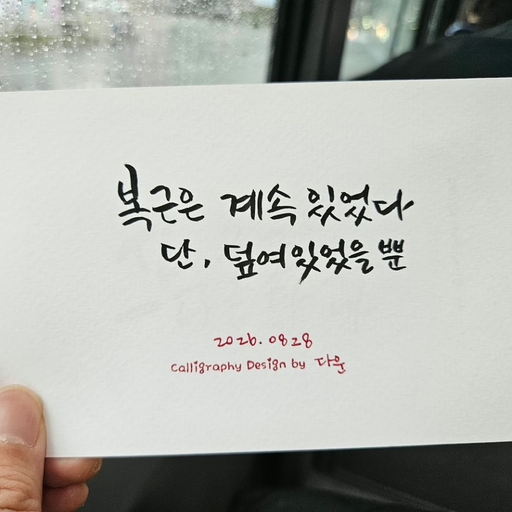 복근은 계속 있었다
단, 덮여있었을 뿐
2026. 08 28
Calligraphy Design by 다운